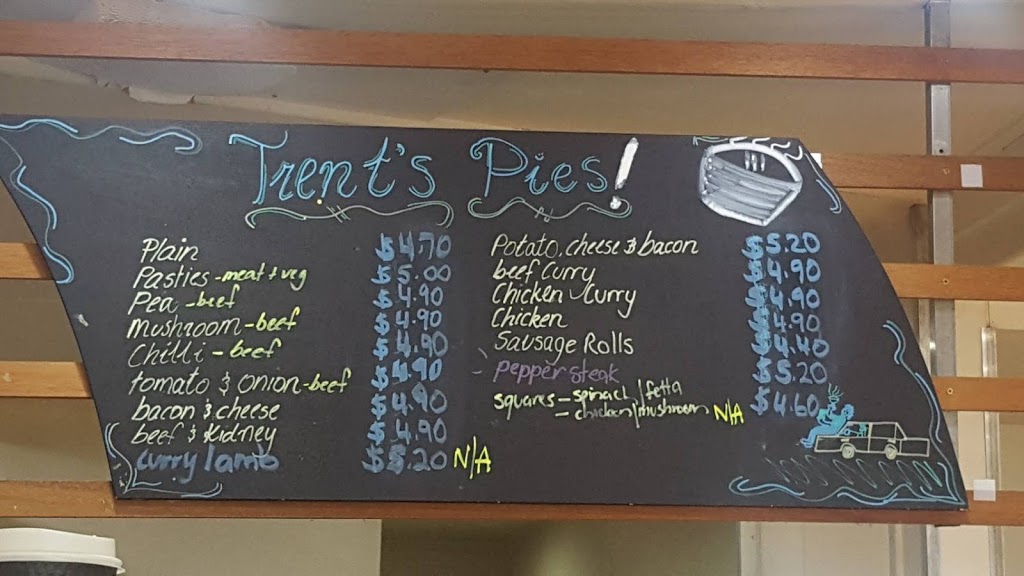 Trent's Pies!
Plain $4.70
Pasties - meat + veg $5.00
Pea - beef $4.90
Mushroom - beef $4.90
Chilli - beef $4.90
tomato & onion - beef $4.90
bacon & cheese $4.90
beef & kidney $4.90
curry lamb $5.20 N/A
Potato, cheese & bacon $5.20
beef Curry $4.90
Chicken Curry $4.90
Chicken $4.90
Sausage Rolls $4.40
pepper steak $5.20
squares - spinach/fetta $4.60
- chicken/mushroom N/A